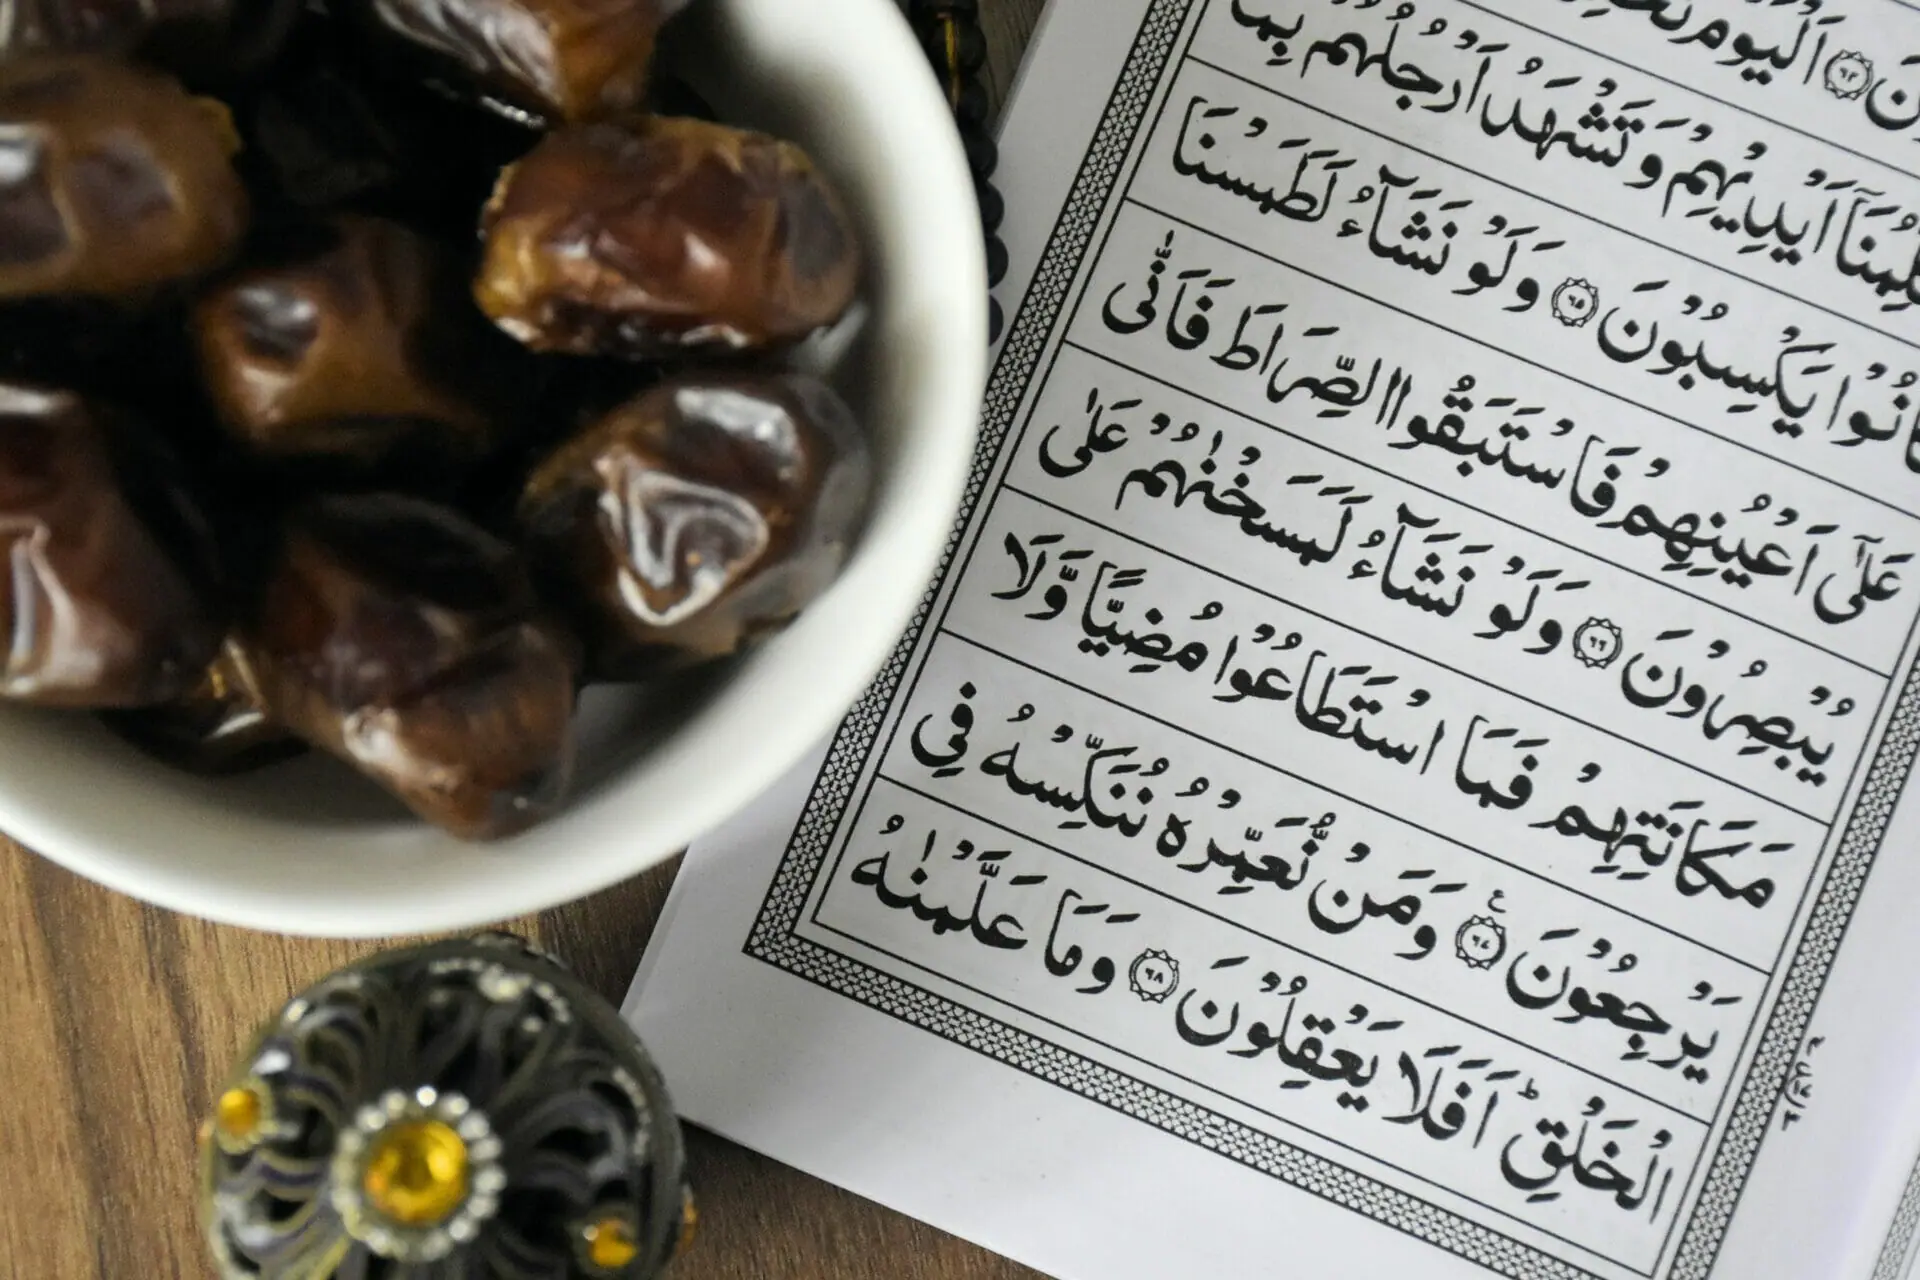 نَ ﴿٦٣﴾ اَلْيَوْمَ
اَيْدِيْهِمْ وَتَشْهَدُ اَرْجُلُهُمْ بِمَا
كَانُوْا يَكْسِبُوْنَ ﴿٦٥﴾ وَلَوْ نَشَآءُ لَطَمَسْنَا
عَلٰٓى اَعْيُنِهِمْ فَاسْتَبَقُوا الصِّرَاطَ فَاَنّٰى
يُبْصِرُوْنَ ﴿٦٦﴾ وَلَوْ نَشَآءُ لَمَسَخْنٰهُمْ عَلٰى
مَكَانَتِهِمْ فَمَا اسْتَطَاعُوْا مُضِيًّا وَّلَا
يَرْجِعُوْنَ ﴿٦٧﴾ ع وَمَنْ نُّعَمِّرْهُ نُنَكِّسْهُ فِى
الْخَلْقِ ؕ اَفَلَا يَعْقِلُوْنَ ﴿٦٨﴾ وَمَا عَلَّمْنٰهُ